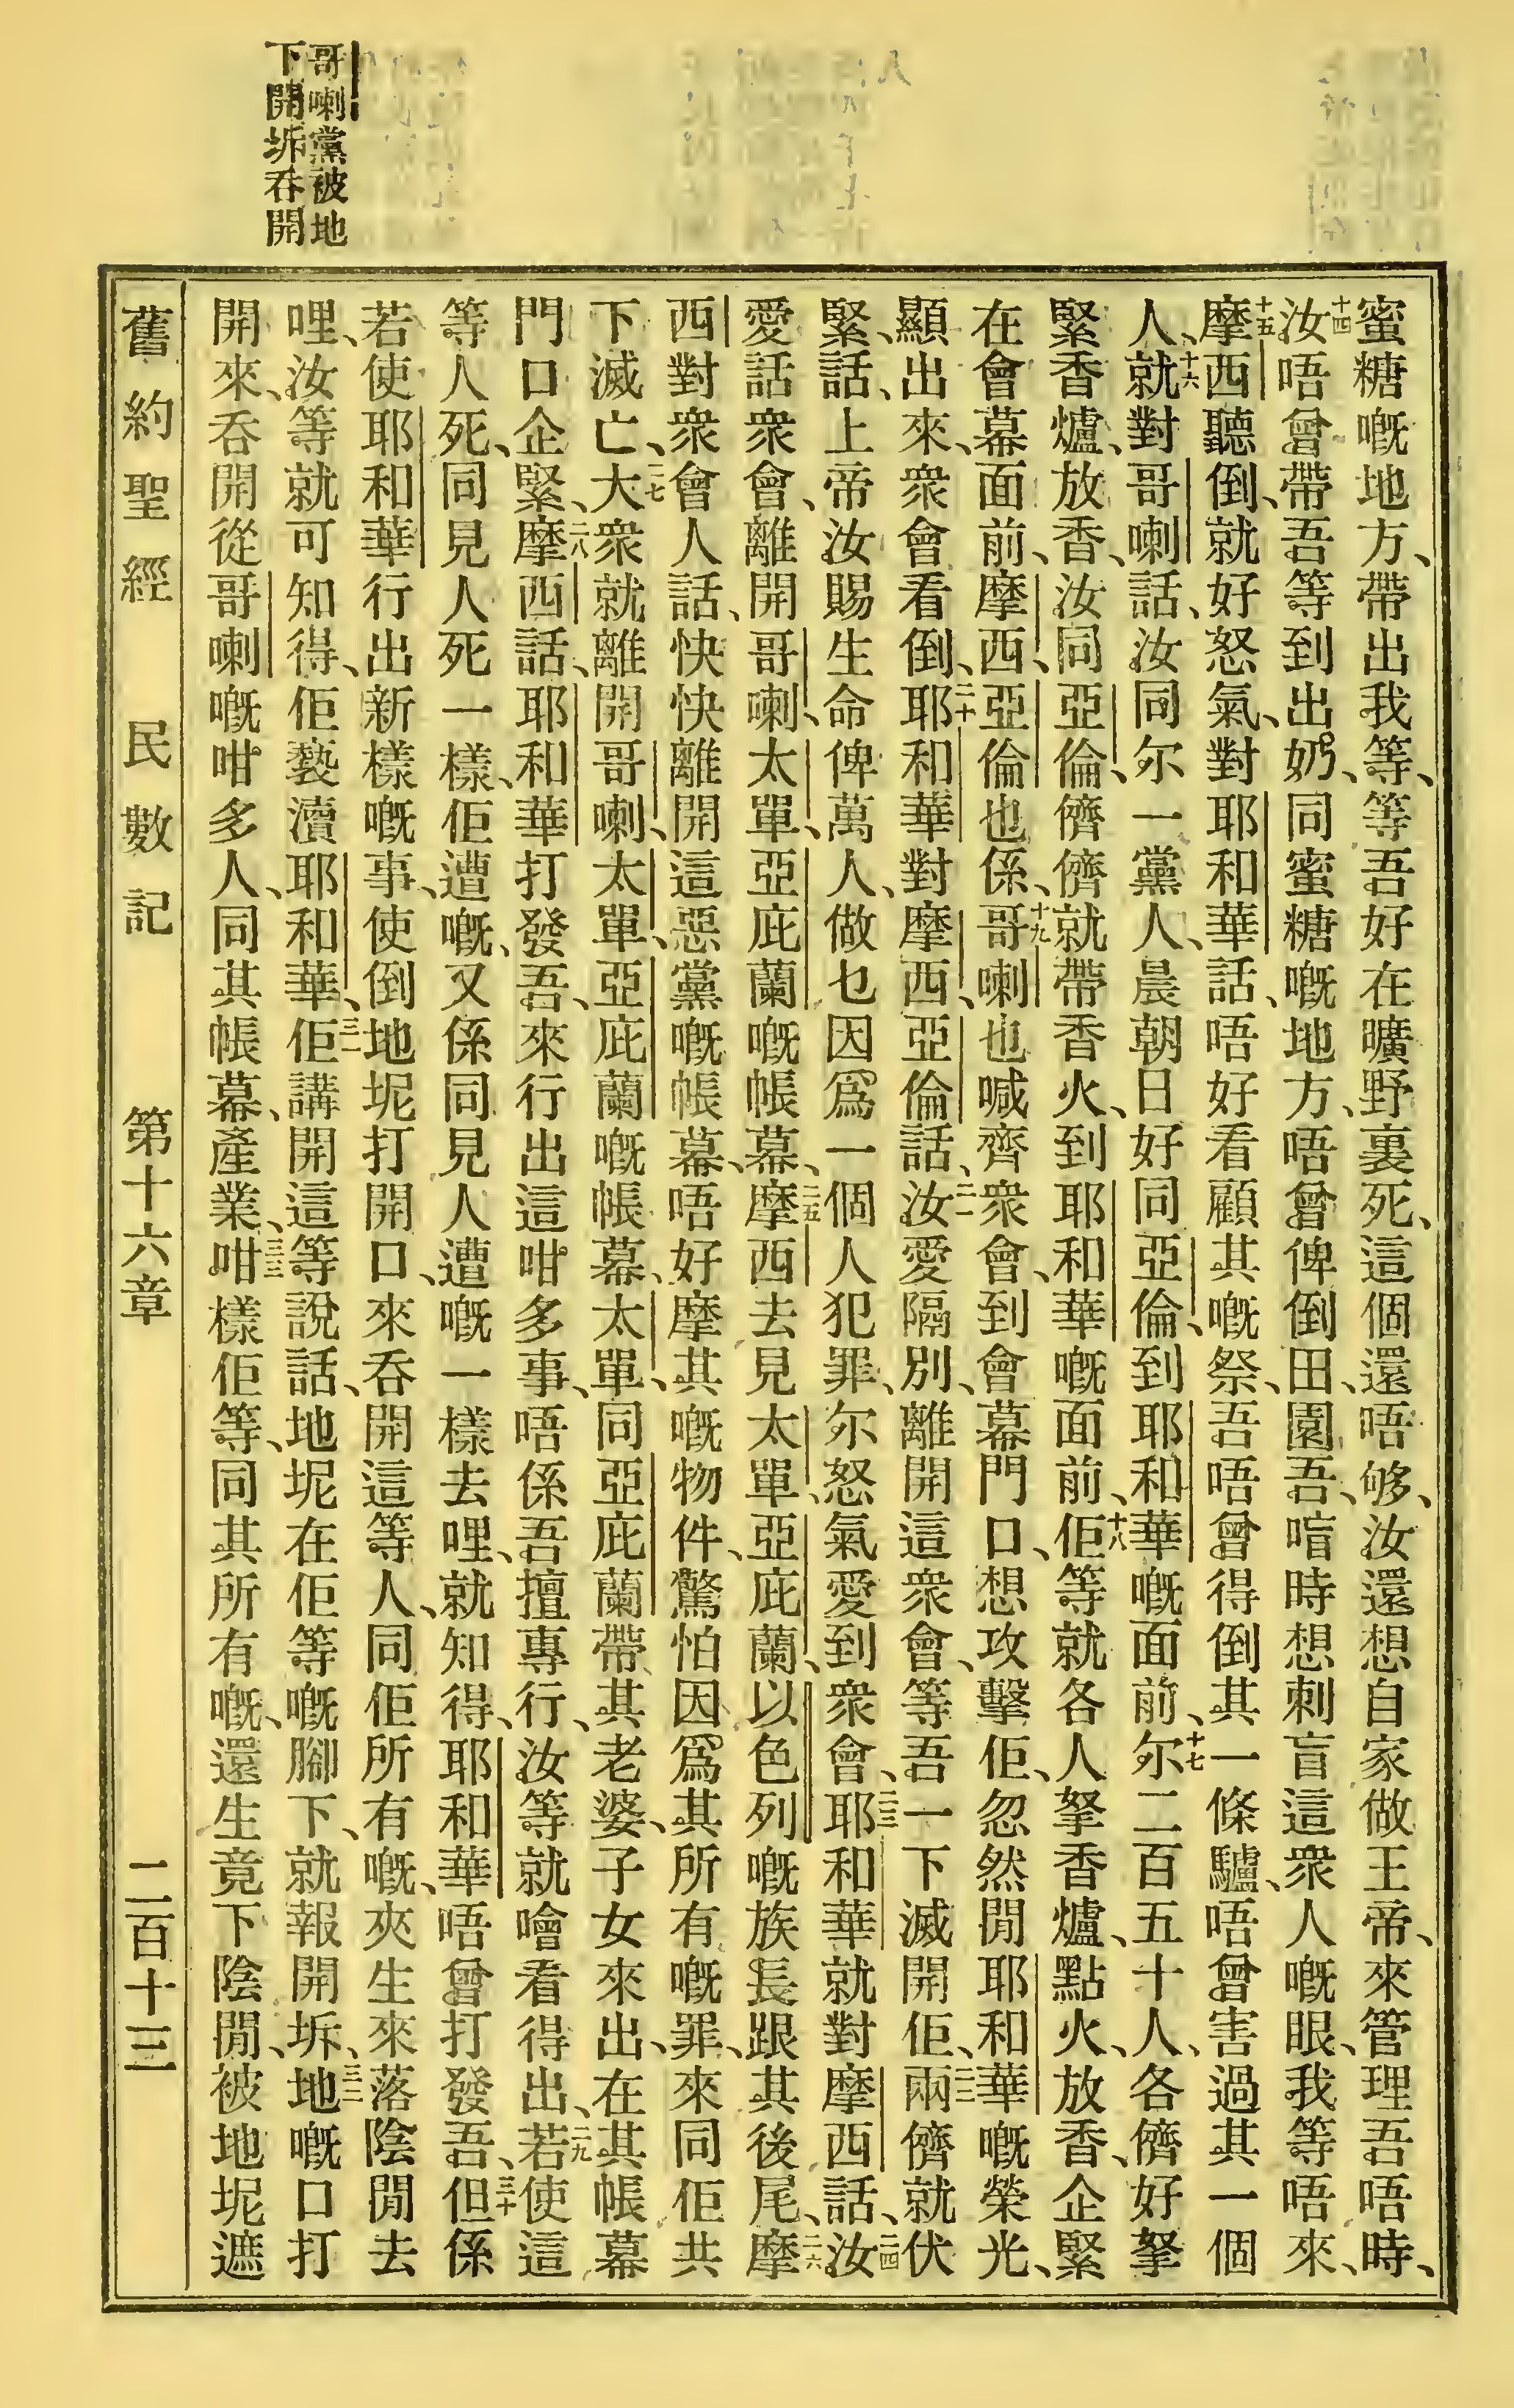 哥喇黨被地
下開坼吞開
蜜糖嘅地方、帶出我等、等吾好在曠野裏死、這個還唔够、汝還想自家做王帝、來管理吾唔時、
十四汝唔曾帶吾等到出奶、同蜜糖嘅地方、唔曾俾倒田、園吾、喑時想刺盲這衆人嘅眼、我等唔來、
十五摩西聽倒、就好怒氣、對耶和華話、唔好看顧其嘅祭、吾唔曾得倒其一條驢、唔曾害過其一個
人、十六就對哥喇話、汝同尔一黨人、晨朝日好同亞倫、到耶和華嘅面前、十七尔二百五十人、各儕好拏
緊香爐、放香、汝同亞倫、儕儕就帶香火、到耶和華嘅面前、十八佢等就各人拏香爐、點火、放香、企緊
在會幕面前、摩西、亞倫也係、十九哥喇也喊齊衆會、到會幕門口、想攻擊佢、忽然間耶和華嘅榮光、
顯出來、衆會看倒、二十耶和華對摩西、亞倫話、二一汝愛隔別、離開這衆會、等吾一下滅開佢、二二兩儕就伏
緊、話、上帝汝賜生命俾萬人、做乜因爲一個人犯罪、尔怒氣愛到衆會、二三耶和華就對摩西話、二四汝
愛話衆會、離開哥喇、太單、亞庇蘭嘅帳幕、二五摩西去見太單、亞庇蘭、以色列嘅族長跟其後尾、二六摩
西對衆會人話、快快離開這惡黨嘅帳幕、唔好摩其嘅物件、驚怕因爲其所有嘅罪、來同佢共
下滅亡、二七大衆就離開哥喇、太單、亞庇蘭嘅帳幕、太單、同亞庇蘭帶其老婆、子女來出、在其帳幕
門口企緊、二八摩西話、耶和華打發吾、來行出這咁多事、唔係吾擅專行、汝等就噲看得出、二九若使這
等人死、同見人死一樣、佢遭嘅、又係同見人遭嘅一樣去哩、就知得、耶和華唔曾打發吾、三十但係
若使耶和華行出新樣嘅事、使倒地坭打開口、來吞開這等人、同佢所有嘅、夾生來落陰間去
哩、汝等就可知得、佢褻瀆耶和華、三一佢講開這等說話、地坭在佢等嘅腳下、就報開坼、三二地嘅口打
開來、吞開從哥喇嘅咁多人、同其帳幕、產業、三三咁樣佢等、同其所有嘅、還生竟下陰間、被地坭遮
舊約聖經　民數記　第十六章　二百十三